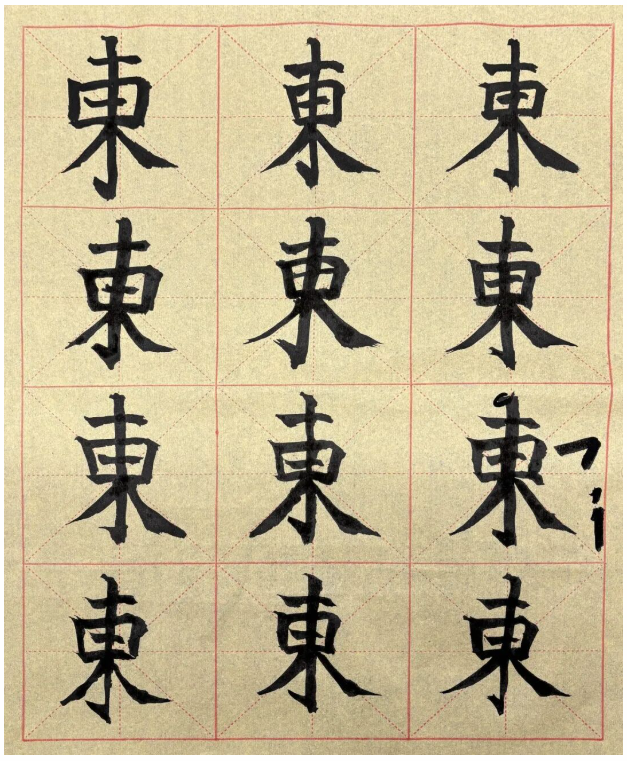 東東東
東東東
東東東
東東東